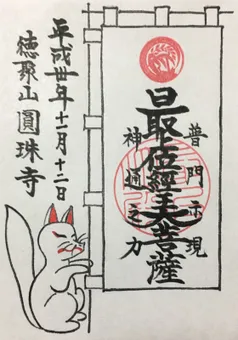 普門示現
最上位經王大菩薩
神通之力
平成卅年十一月十二日
徳聚山 圓珠寺